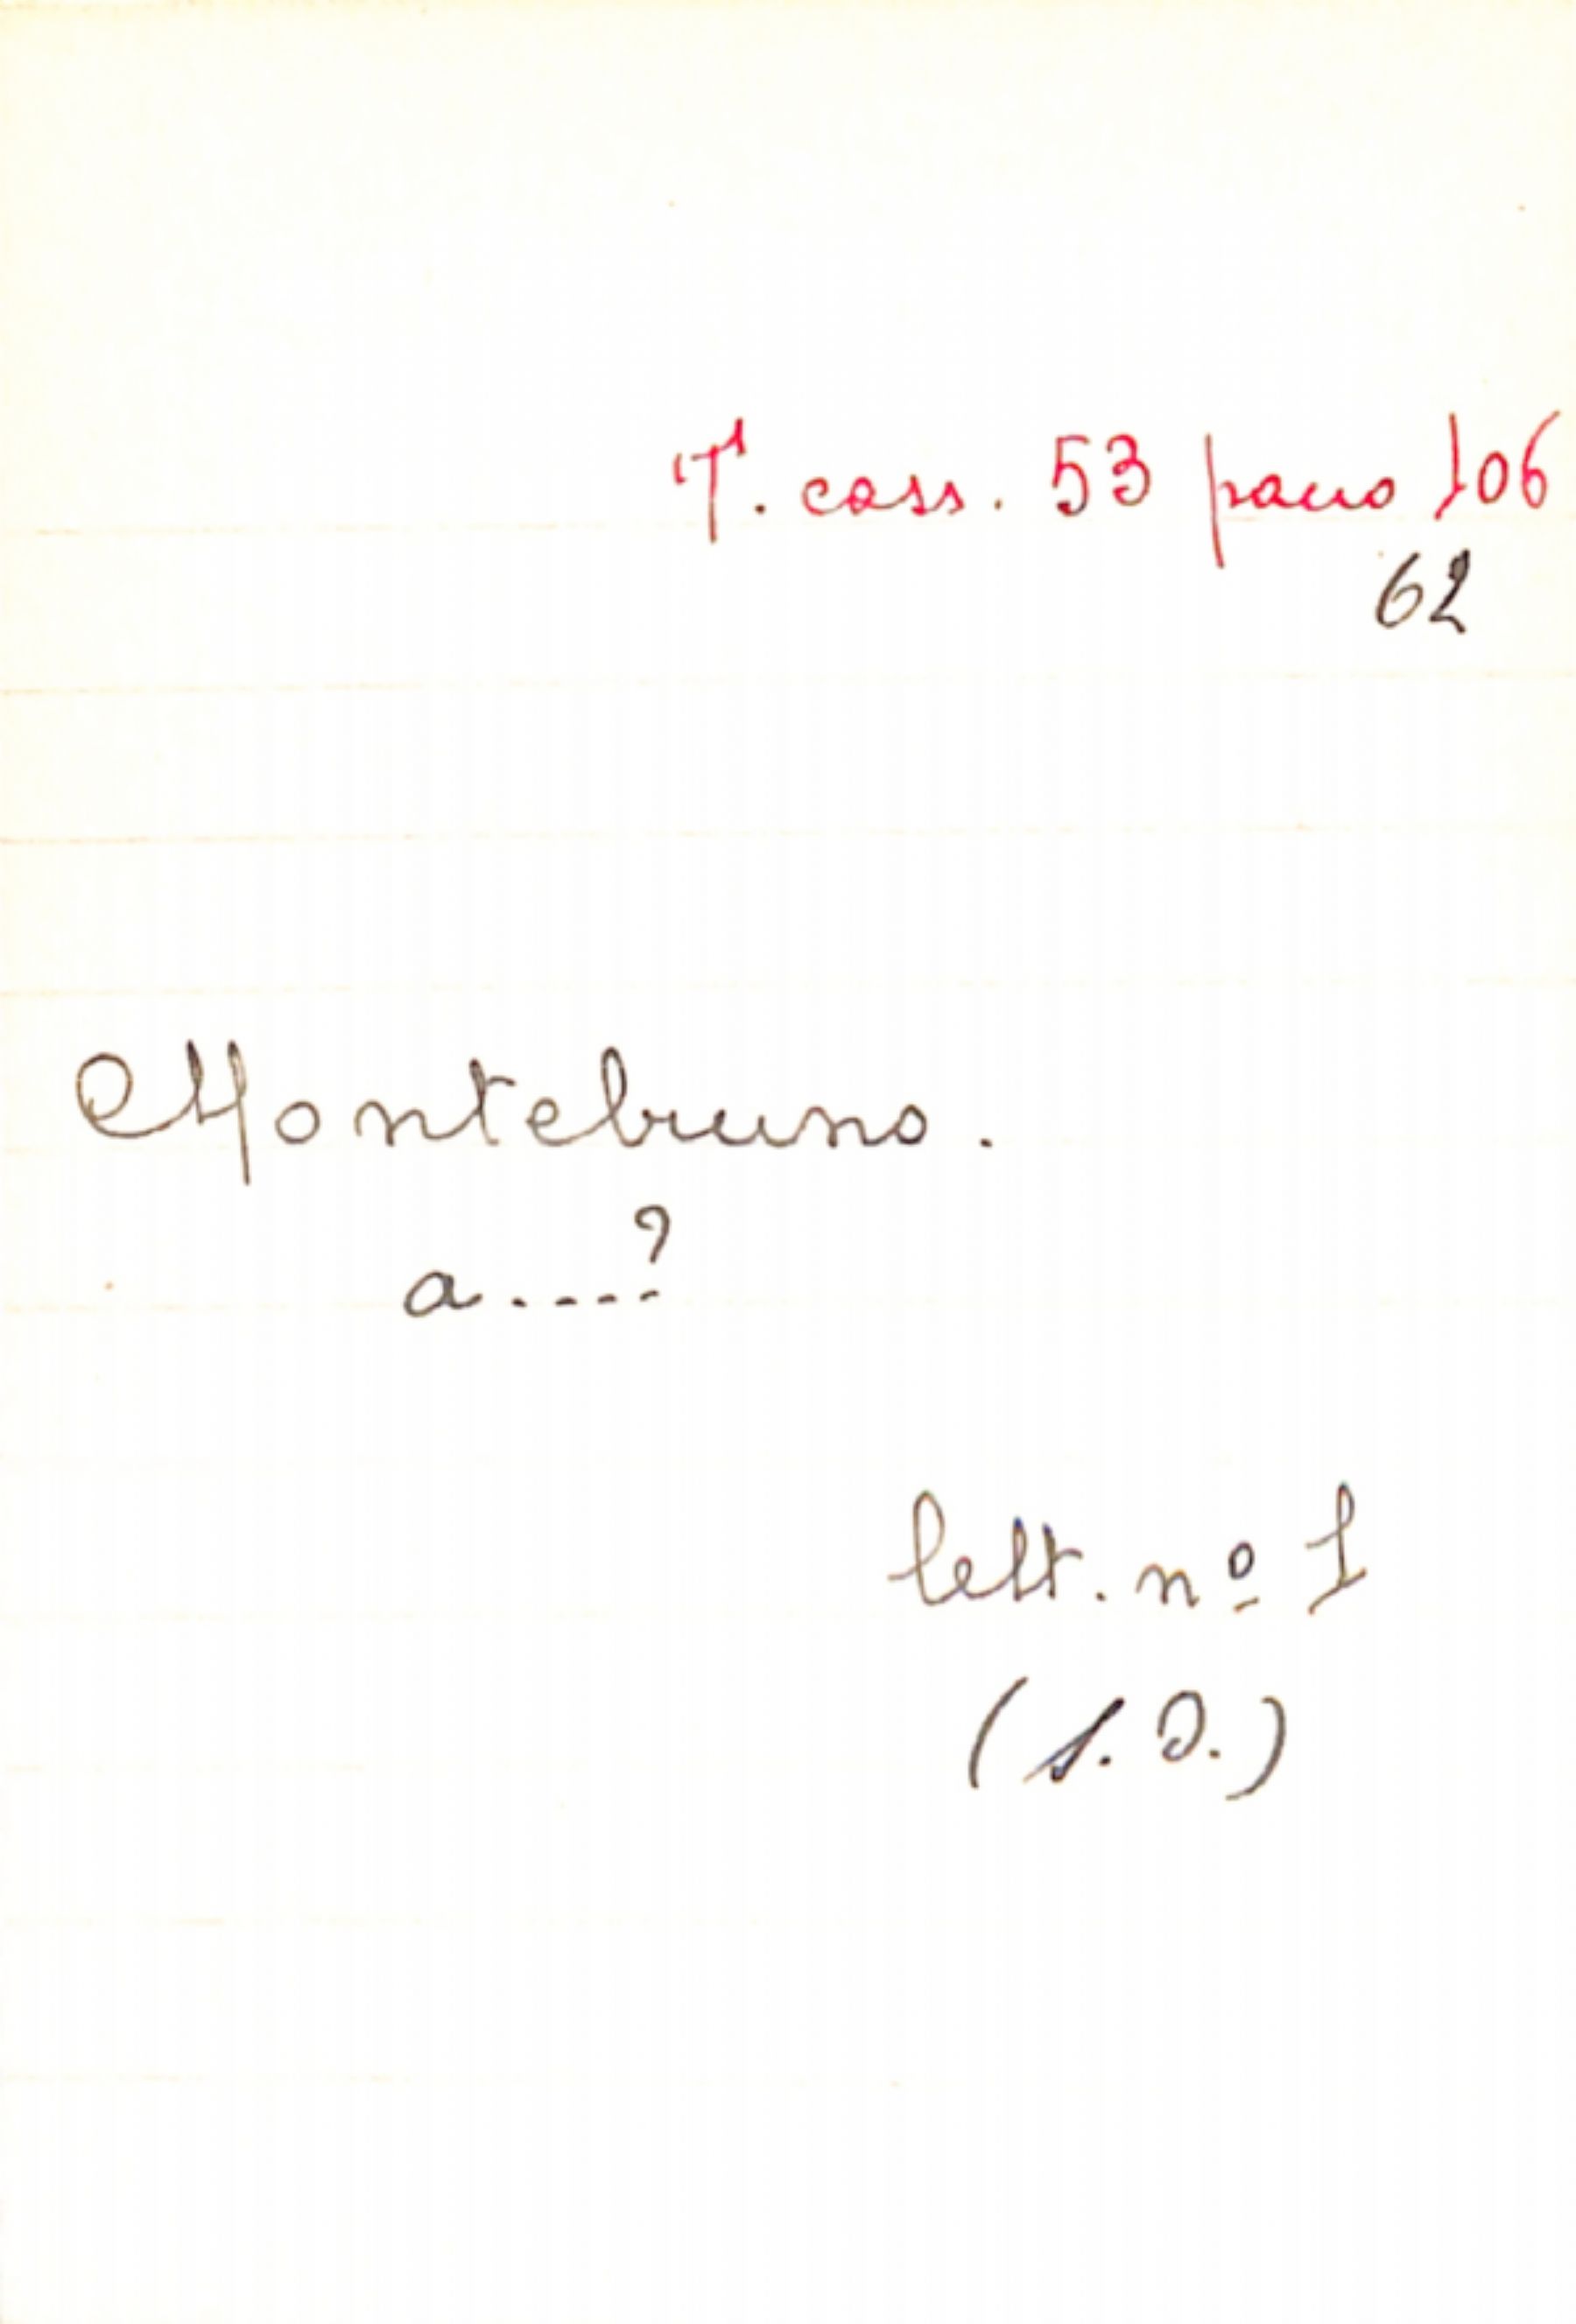 T. cass. 53 pacco 106
62
Montebruno.
a....?
lett. nº 1
(s.D.)